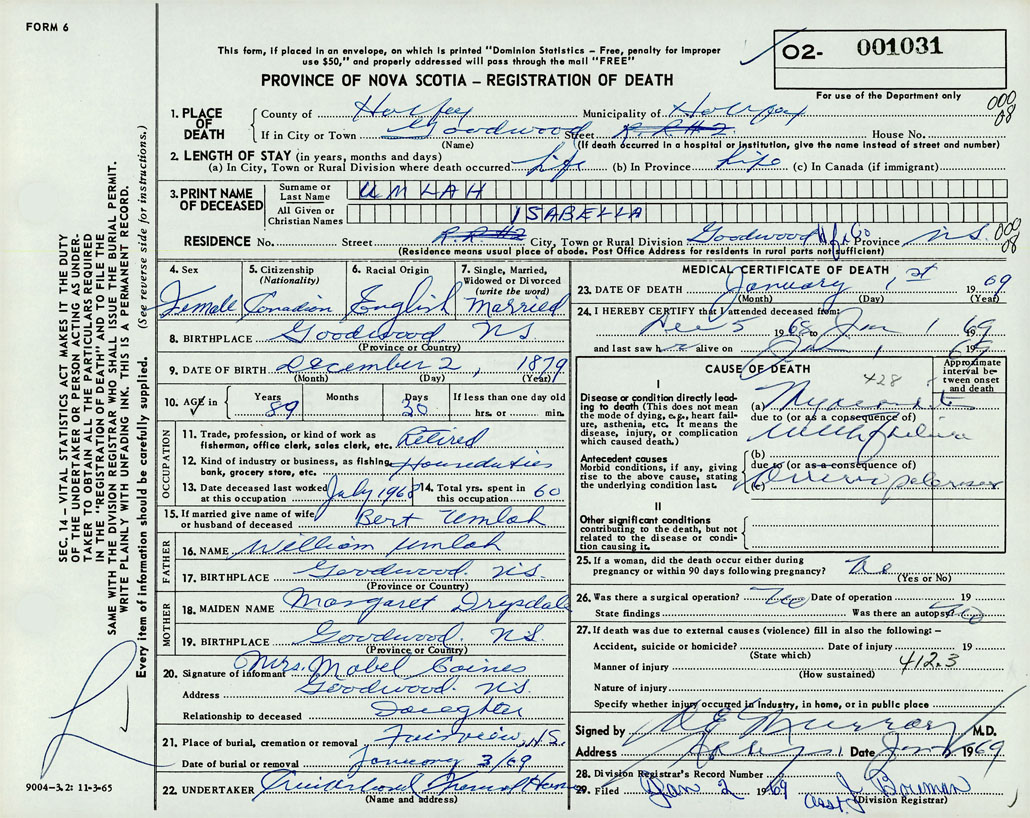 FORM 6
This form, if placed in an envelope, on which is printed "Dominion Statistics – Free, penalty for improper
use $50," and properly addressed will pass through the mail "FREE"
PROVINCE OF NOVA SCOTIA – REGISTRATION OF DEATH
O2- 001031
For use of the Department only
000
08
1. PLACE OF DEATH
County of Halifax Municipality of Halifax
If in City or Town Goodwood Street R.R#2 House No.
(Name) (If death occurred in a hospital or institution, give the name instead of street and number)
2. LENGTH OF STAY (in years, months and days)
(a) In City, Town or Rural Division where death occurred life (b) In Province Life (c) In Canada (if immigrant)
3. PRINT NAME OF DECEASED
Surname or Last Name UMLAH
All Given or Christian Names ISABELLA
RESIDENCE No. Street R.R.#2 City, Town or Rural Division Goodwood Hfx Co Province N.S.
000
08
(Residence means usual place of abode. Post Office Address for residents in rural parts not sufficient)
4. Sex Female
5. Citizenship (Nationality) Canadian
6. Racial Origin English
7. Single, Married, Widowed or Divorced (write the word) Married
8. BIRTHPLACE Goodwood NS
(Province or Country)
9. DATE OF BIRTH December 2, 1879
(Month) (Day) (Year)
10. AGE in Years 89 Months Days 30 If less than one day old
hrs. or min.
OCCUPATION
11. Trade, profession, or kind of work as
fisherman, office clerk, sales clerk, etc. Retired
12. Kind of industry or business, as fishing,
bank, grocery store, etc. Houseduties
13. Date deceased last worked
at this occupation July 1968
14. Total yrs. spent in
this occupation 60
15. If married give name of wife
or husband of deceased Bert Umlah
FATHER
16. NAME William Umlah
17. BIRTHPLACE Goodwood NS.
(Province or Country)
MOTHER
18. MAIDEN NAME Margaret Drysdale
19. BIRTHPLACE Goodwood. N.S.
(Province or Country)
20. Signature of informant Mrs. Mabel Coines
Address Goodwood. N.S.
Relationship to deceased Daughter
21. Place of burial, cremation or removal Fairview, N.S.
Date of burial or removal January 3/69
22. UNDERTAKER Funeral Home
(Name and address)
MEDICAL CERTIFICATE OF DEATH
23. DATE OF DEATH January 1st 1969
(Month) (Day) (Year)
24. I HEREBY CERTIFY that I attended deceased from:
Dec 5 1968 to Jan 1 1969
and last saw her alive on Jan 1 1969
CAUSE OF DEATH
Approximate interval between onset and death
428
I
Disease or condition directly leading to death (This does not
mean the mode of dying, e.g., heart failure,
asthenia, etc. It means the
disease, injury, or complication
which caused death.)
(a)
due to (or as a consequence of)
Antecedent causes
Morbid conditions, if any, giving
rise to the above cause, stating
the underlying condition last.
(b)
due to (or as a consequence of)
(c)
II
Other significant conditions
contributing to the death, but not
related to the disease or condition
causing it.
25. If a woman, did the death occur either during
pregnancy or within 90 days following pregnancy? No
(Yes or No)
26. Was there a surgical operation? No Date of operation 19
State findings Was there an autopsy? No
27. If death was due to external causes (violence) fill in also the following: –
Accident, suicide or homicide? Date of injury 19
(State which)
412.3
Manner of injury
(How sustained)
Nature of injury
Specify whether injury occurred in industry, in home, or in public place
Signed by Murray M.D.
Address Date Jan 1969
28. Division Registrar's Record Number
29. Filed Jan 2 1969 J Bowman
asst. (Division Registrar)
SEC. 14 – VITAL STATISTICS ACT MAKES IT THE DUTY
OF THE UNDERTAKER OR PERSON ACTING AS UNDER-
TAKER TO OBTAIN ALL THE PARTICULARS REQUIRED
IN THE "REGISTRATION OF DEATH" AND TO FILE THE
SAME WITH THE DIVISION REGISTRAR WHO SHALL ISSUE THE BURIAL PERMIT.
WRITE PLAINLY WITH UNFADING INK. THIS IS A PERMANENT RECORD.
Every item of information should be carefully supplied. (See reverse side for instructions.)
9004-3.2: 11-3-65